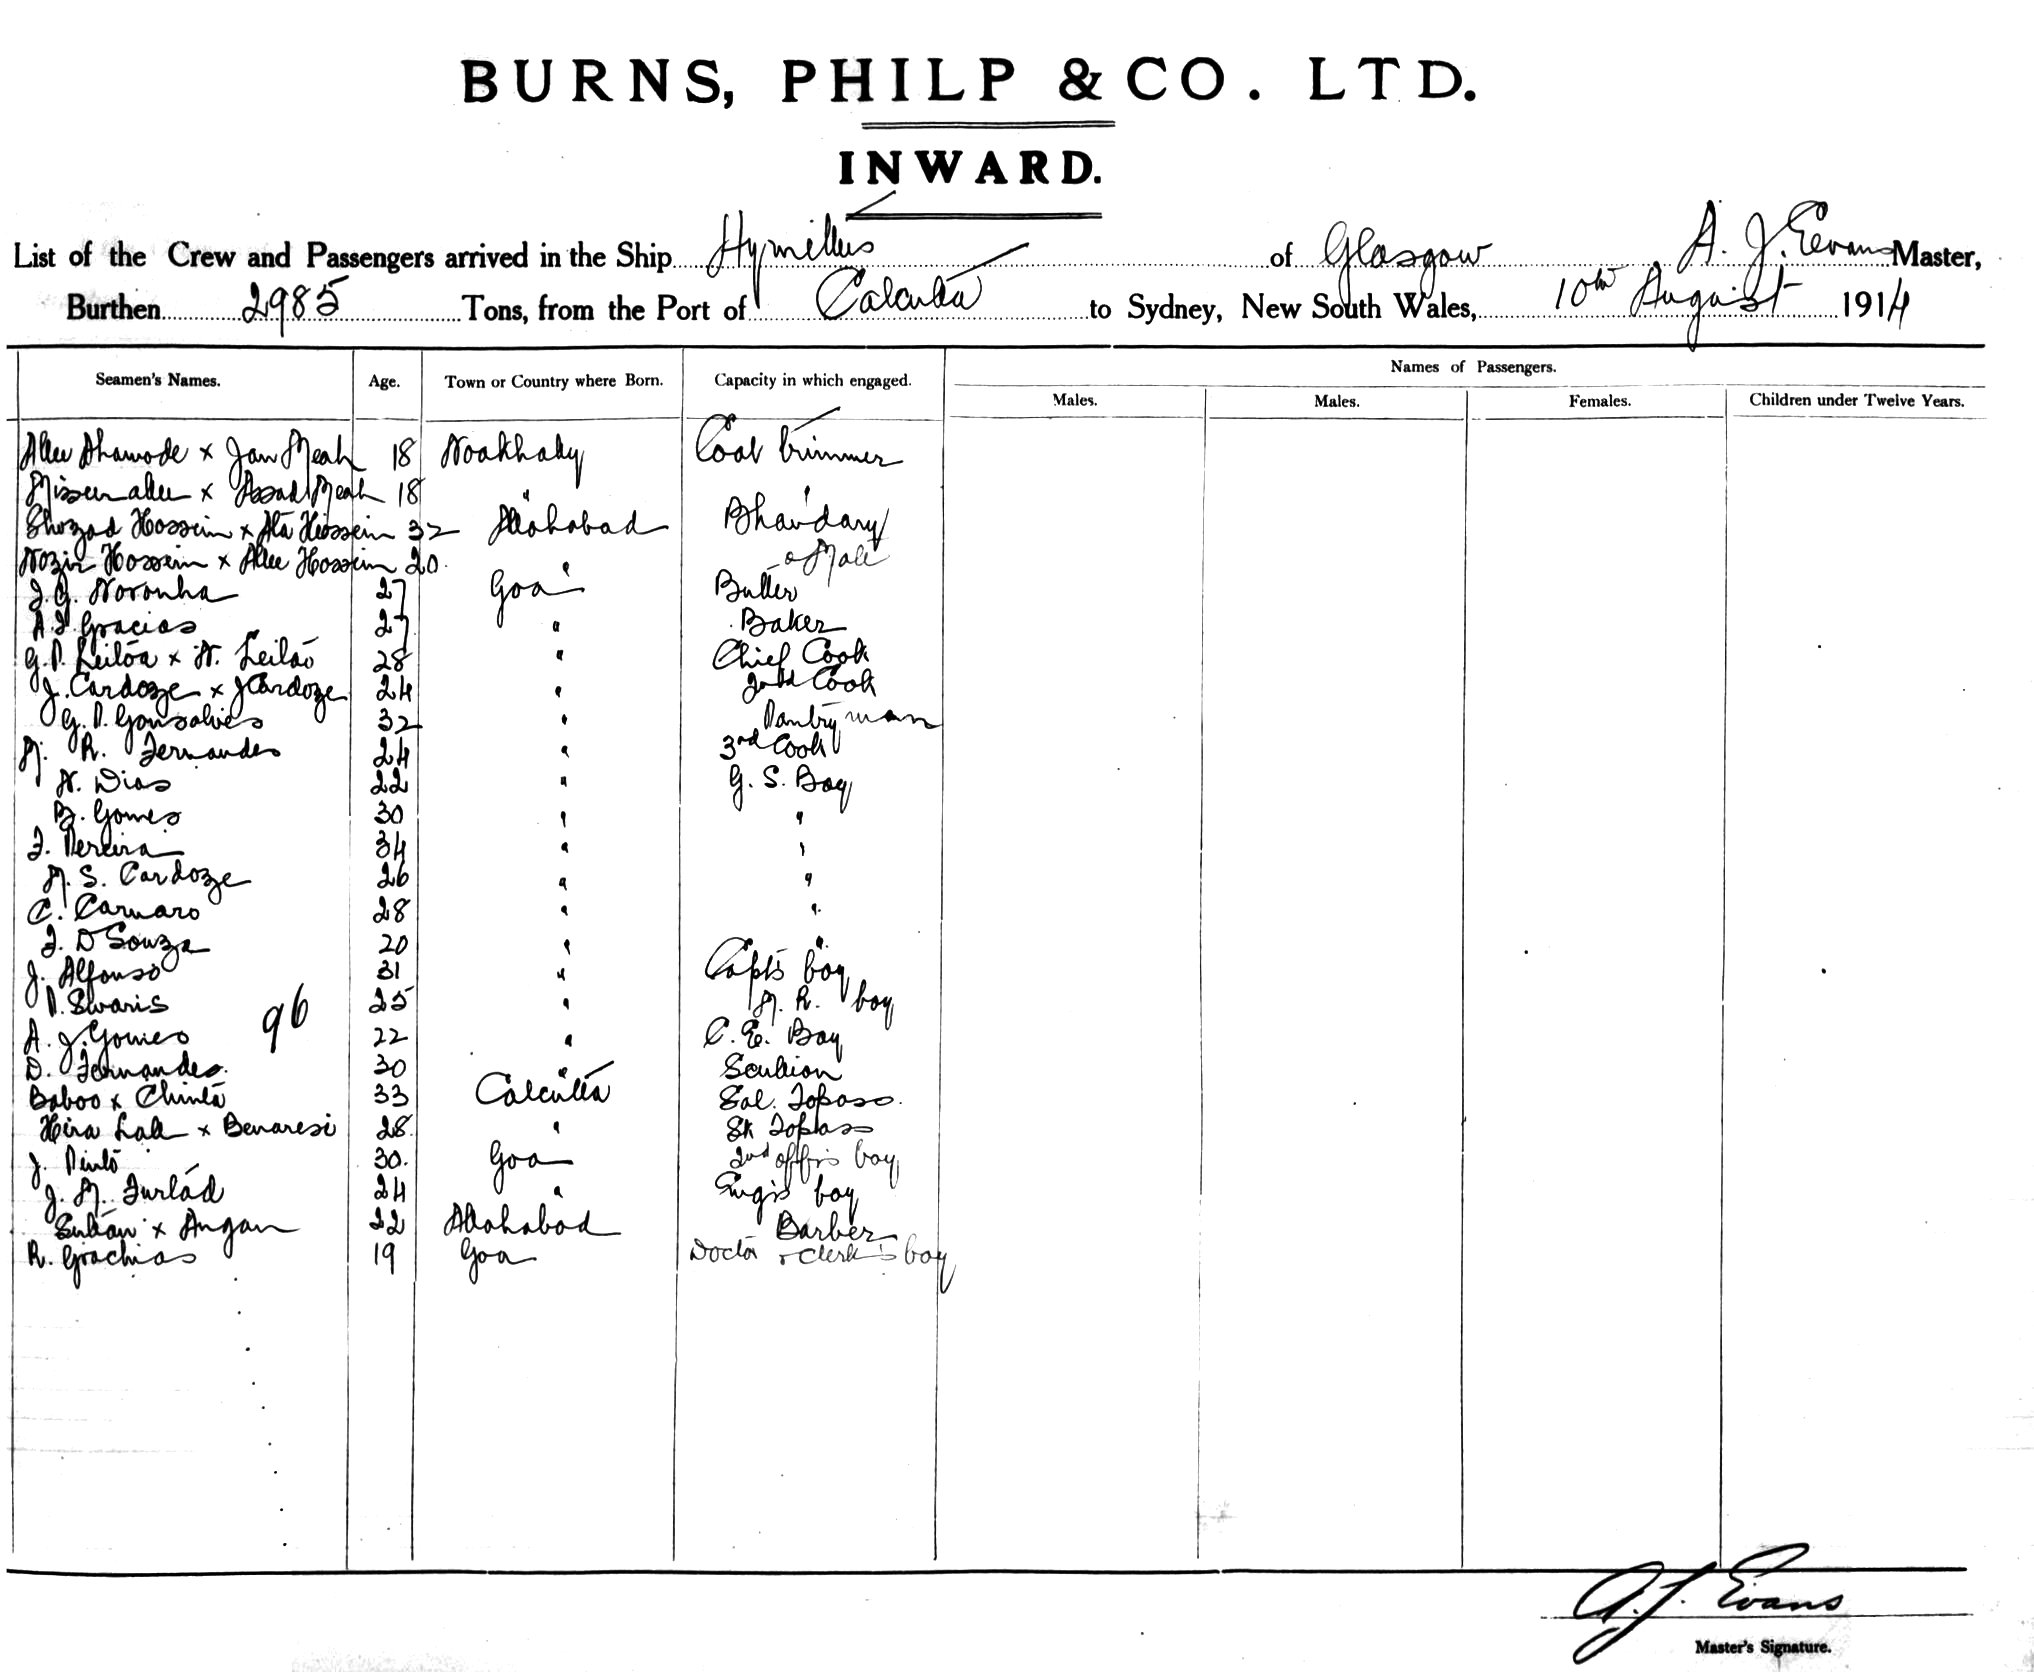 BURNS, PHILP & CO. LTD.
INWARD.
List of the Crew and Passengers arrived in the Ship Hymettus of Glasgow A. J. Evans Master,
Burthen 2985 Tons, from the Port of Calcutta to Sydney, New South Wales, 10th August 1914
Names of Passengers.
Seamen's Names. Age. Town or Country where Born. Capacity in which engaged. Males. Males. Females. Children under Twelve Years.
Allee Ahamode x Jan Meah 18 Noakhaly Coal trimmer
x Assad Meah 18 " "
Shozad Hossein x Ata Hossein 32 Allahabad Bhandary
Nozir Hossein x Allee Hossein 20. " " Mate
J. G. Noronha 27 Goa Butler
A. F. Gracias 27 " Baker
G. P. Leitoa x N. Leitao 28 " Chief Cook
J. Cardoze x J Cardoze 24 " 2nd Cook
G. P. Gonsalves 32 " Pantry man
M. R. Fernandes 24 " 3rd Cook
N. Dias 22 " G. S. Boy
B. Gomes 30 " "
F. Pereira 34 " "
M. S. Cardoze 26 " "
C. Carvaro 28 " "
F. D Souza 20 " "
J. Alfonso 31 " Capt's boy
P. Swaris 25 " M. R. boy
96
A. J. Gomes 22 " C. E. Boy
D. Fernandes. 30 " Scullion
Baboo x Chinta 33 Calcutta Sal. Topass.
Hira Lall x Benaresi 28. " Sk Topass
J. Pinto 30. Goa 2nd offr's boy
J. M. Furtad 24 " Engr's boy
Sultan x Angan 22 Allahabad Barber
R. Grachias 19 Goa Doctor & Clerk's boy
A. J. Evans
Master's Signature.